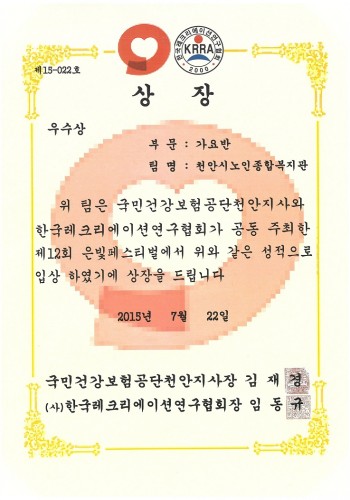 한국레크리에이션연구협회
KRRA
2000
제15-022호
상 장
우수상
부 문 : 가요반
팀 명 : 천안시노인종합복지관
위 팀은 국민건강보험공단천안지사와
한국레크리에이션연구협회가 공동 주최한
제12회 은빛페스티벌에서 위와 같은 성적으로
입상 하였기에 상장을 드립니다
2015년 7월 22일
국민건강보험공단천안지사장 김 재 경
(사)한국레크리에이션연구협회장 임 동 규